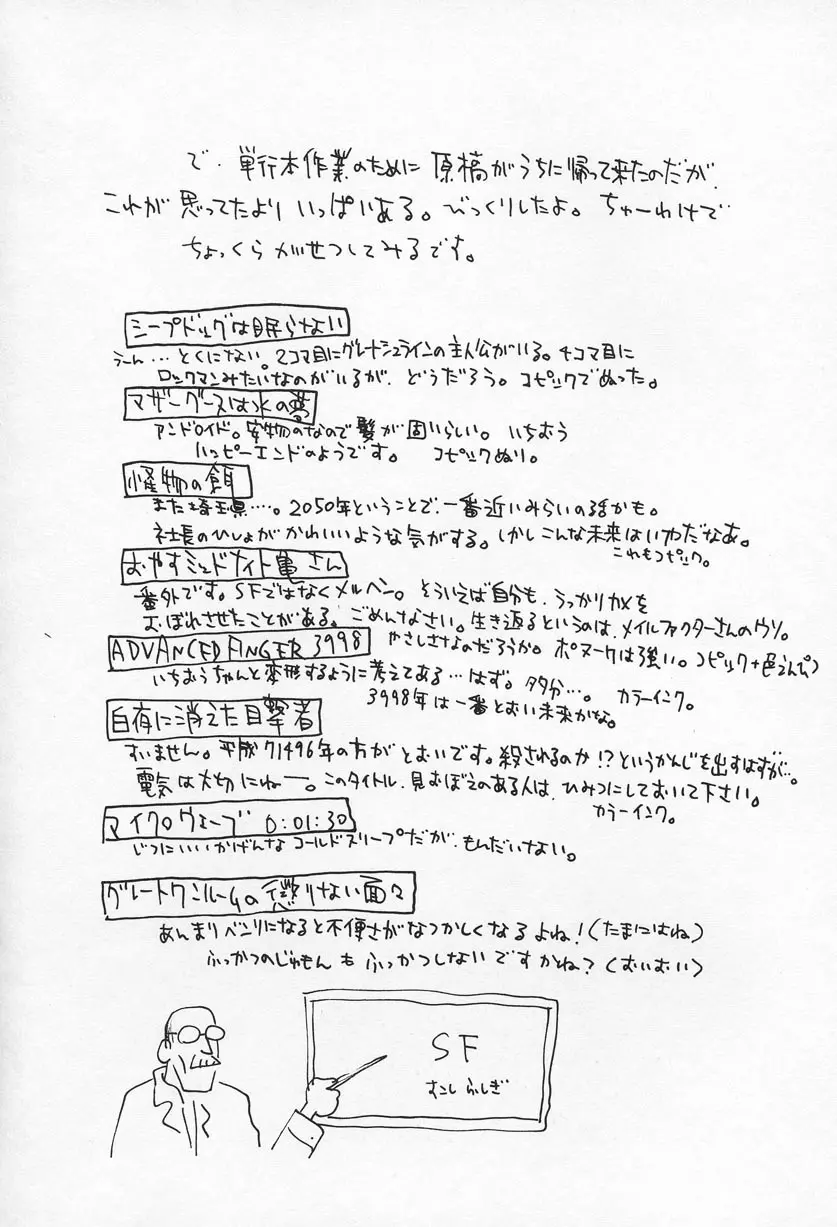 で、単行本作業のために原稿がうちに帰って来たのだが、
これが思ってたよりいっぱいある。びっくりしたよ。ちゅーわけで
ちょっくらかせつしてみるです。
シープドッグは眠らない
うーん…とくにない。2コマ目にグレートシュラインの主人公がいる。4コマ目に
ロックマンみたいなのがいるが、どうだろう。コピックでぬった。
マザーグースは氷の夢
アンドロイド。安物のなので髪が固いらしい。いちおう
ハッピーエンドのようです。コピックぬり。
怪物の餌
また埼玉県…。2050年ということで、一番近いみらいの話かも。
社長のひしょがかわいいような気がする。しかしこんな未来はいやだなあ。
これもコピック。
おやすミッドナイト亀さん
番外です。SFではなくメルヘン。そういえば自分も、うっかりカメを
おぼれさせたことがある。ごめんなさい。生き返るというのは、メイルファクターさんのウソ。
やさしさなのだろうか。ポヌークは強い。コピック+色えんぴつ
ADVANCED FINGER 3998
いちおうちゃんと変形するように考えてある…はず。多分…。カラーインク。
3998年は一番とおい未来かな。
白夜に消えた目撃者
すいません。平成71496年の方がとおいです。殺されるのか!?というかんじを出すはずが…。
電気は大切にねー。このタイトル、見おぼえのある人は、ひみつにしておいて下さい。
カラーインク。
マイクロウェーブ 0:01:30
じつにいいかげんなコールドスリープだが、もんだいない。
グレートワンルームの懲りない面々
あんまりベンリになると不便さがなつかしくなるよね!(たまにはね)
ふっかつのじゅもんもふっかつしないですかね?(おいおい)
SF
すこしふしぎ